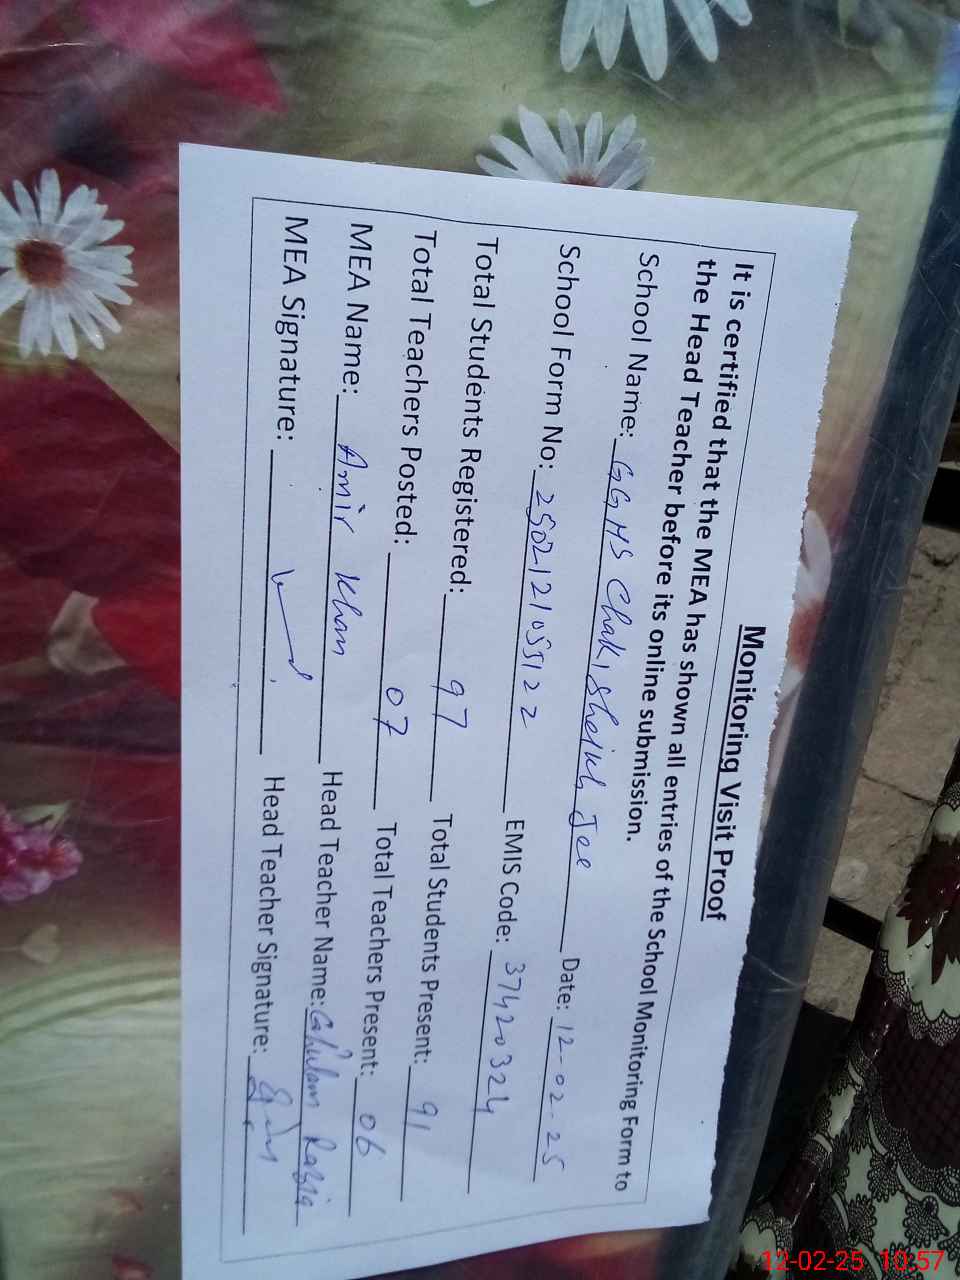 Monitoring Visit Proof
It is certified that the MEA has shown all entries of the School Monitoring Form to
the Head Teacher before its online submission.
School Name: GGHS Chak, Sheikh Jee Date: 12-02-25
School Form No: 2502121055122 EMIS Code: 37420324
Total Students Registered: 97 Total Students Present: 91
Total Teachers Posted: 07 Total Teachers Present: 06
MEA Name: Amir Khan Head Teacher Name: Ghulam Rabia
MEA Signature: Head Teacher Signature:
12-02-25 10:57